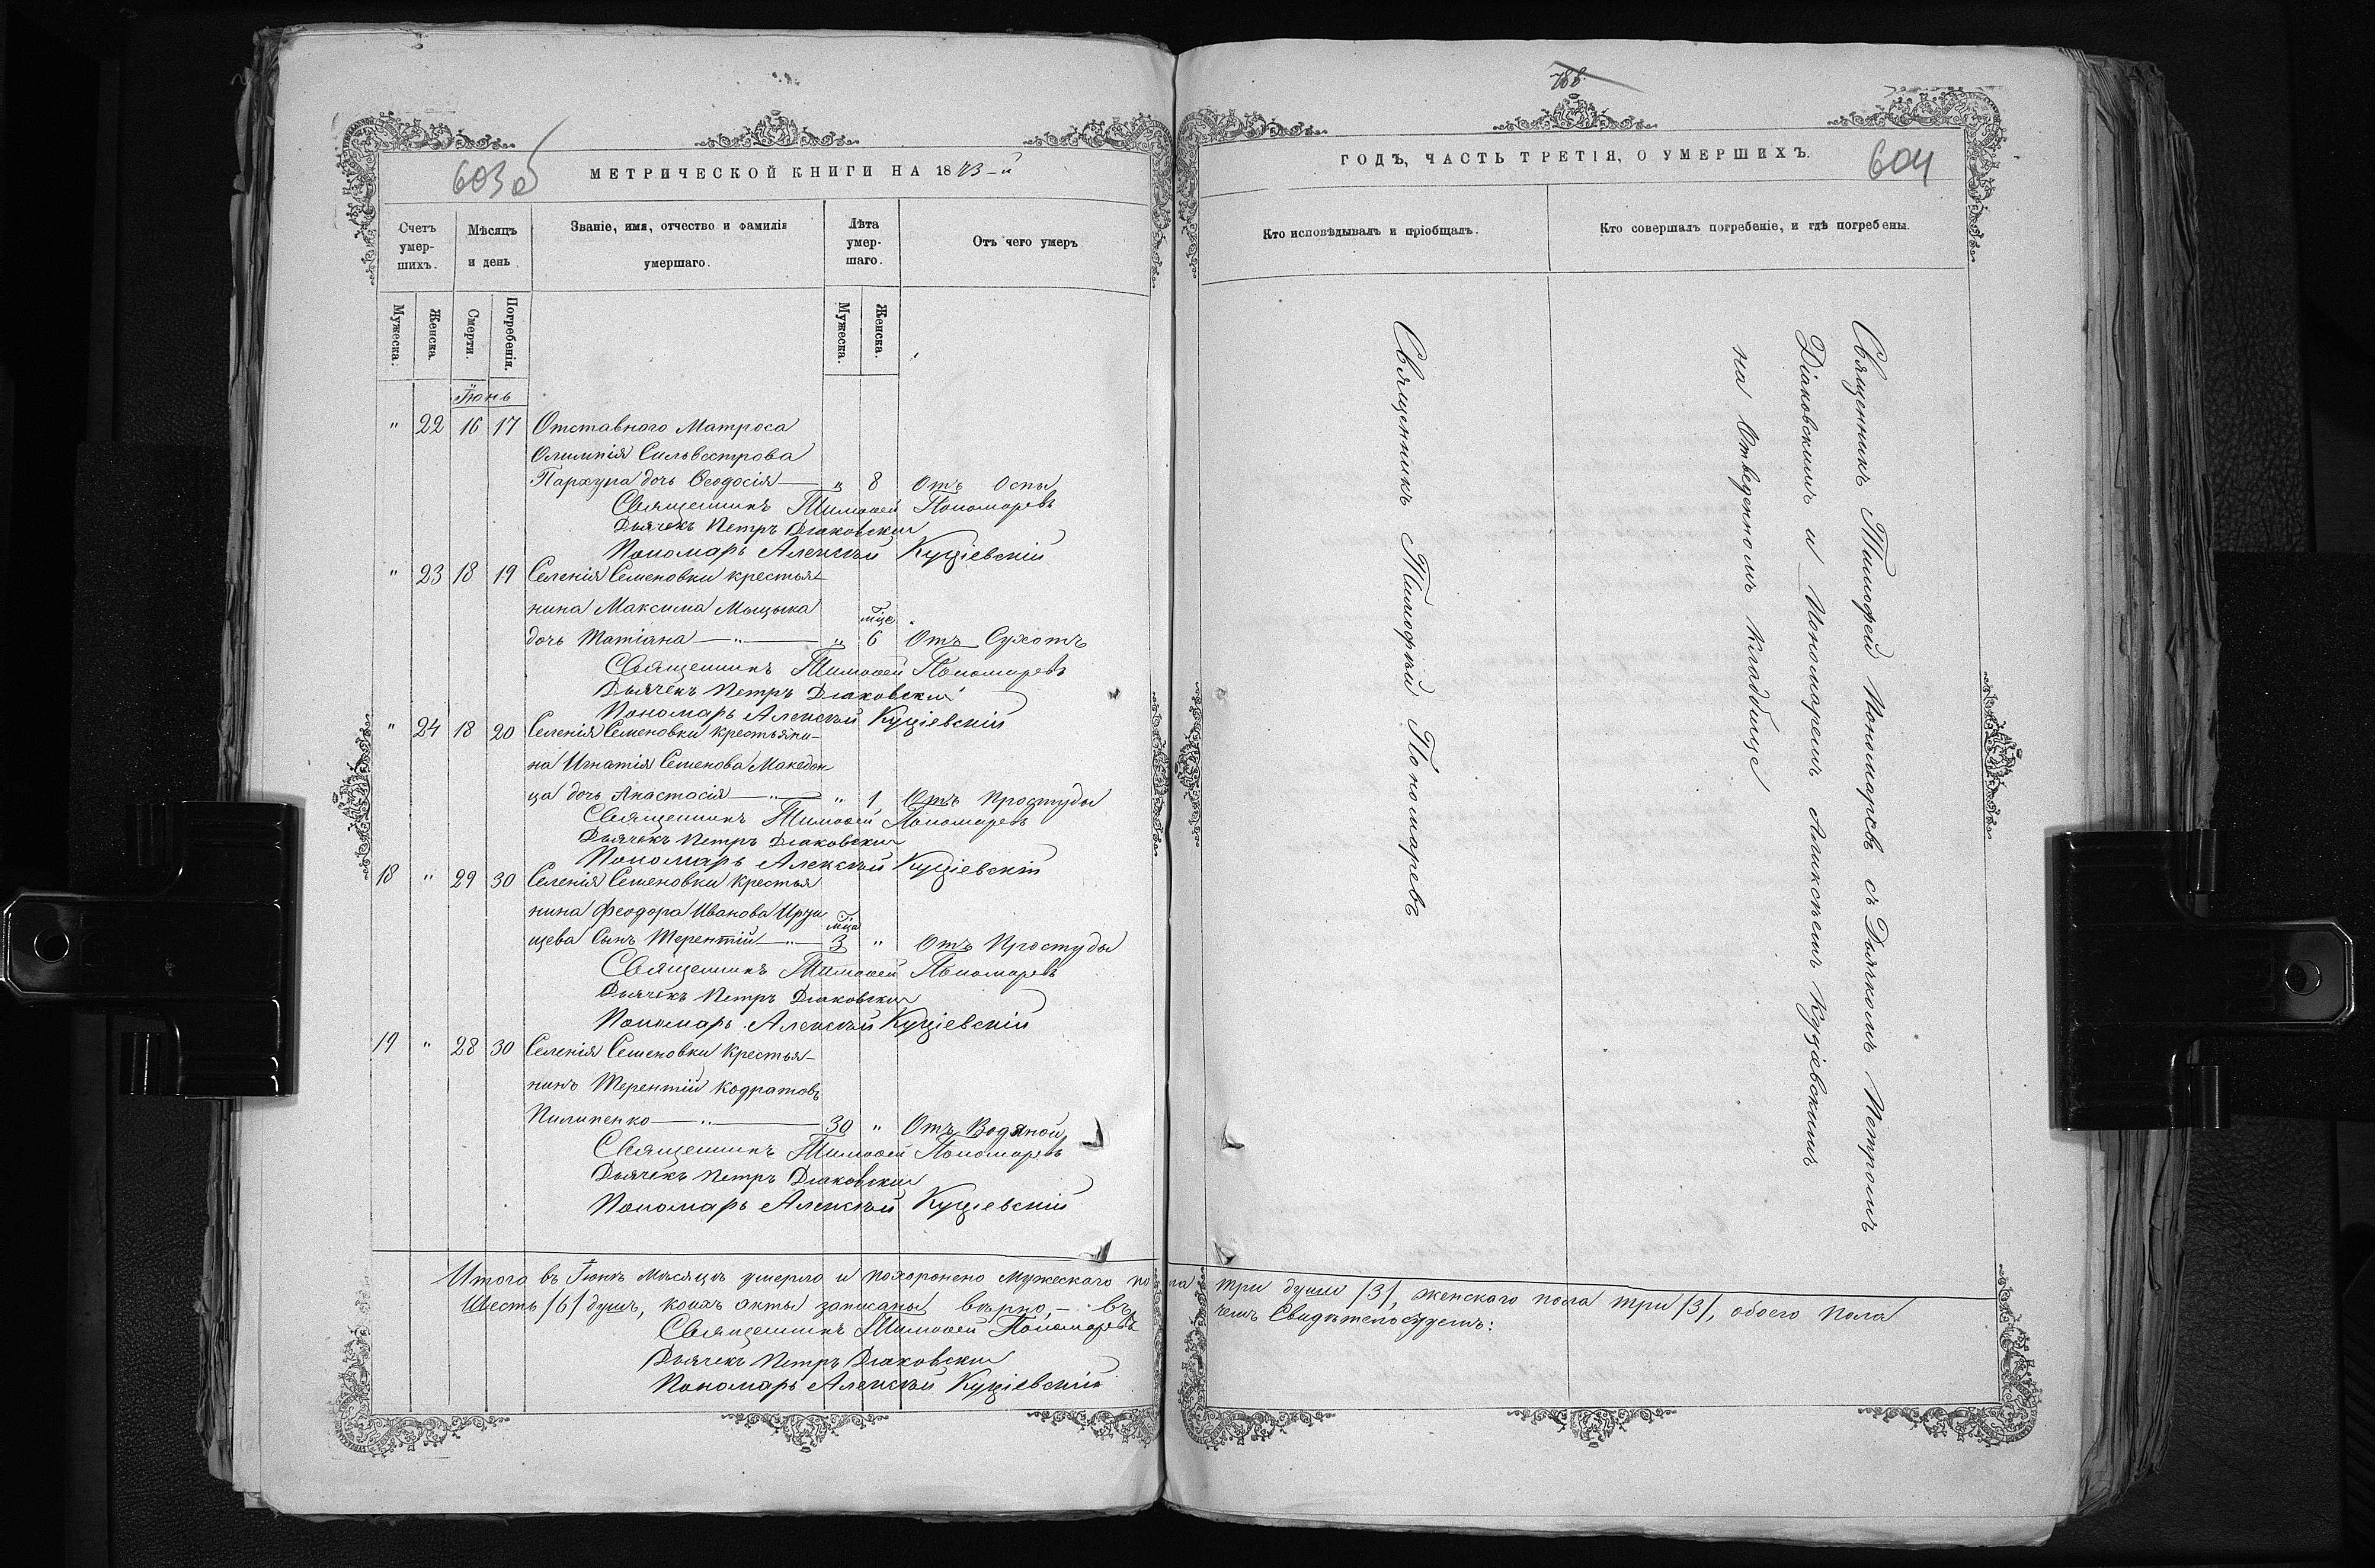 603об
МЕТРИЧЕСКОЙ КНИГИ НА 1873-й
Счетъ умер-шихъ.
Мѣсяцъ и день
Званіе, имя, отчество и фамилія умершаго.
Лѣта умер-шаго.
Отъ чего умеръ
Мужеска.
Женска.
Смерти.
Погребенія.
Мужеска.
Женска.
Іюнь
" 22 16 17 Отставного Матроса
Олимпія Сильвестрова
Пархура дочь Ѳеодосія — " 8 Отъ Оспы
Священникъ Тимоѳей Пономаревъ
Дьячекъ Петръ Діаковскій
Пономарь Алексѣй Куціевскій
" 23 18 19 Селенія Семеновки крестья-
нина Максима Мыцыка мце
дочь Татіана — " — " 6 Отъ Сухотъ
Священникъ Тимоѳей Пономаревъ
Дьячекъ Петръ Діаковскій
Пономарь Алексѣй Куціевскій
" 24 18 20 Селенія Семеновки крестьяни-
на Игнатія Семенова Македон
ца дочь Анастасія — " — " 1 Отъ Простуды
Священникъ Тимоѳей Пономаревъ
Дьячекъ Петръ Діаковскій
Пономарь Алексѣй Куціевскій
18 " 29 30 Селенія Семеновки Крестья
нина Феодора Иванова мца
щева Сынъ Терентій — " — 3 " Отъ Простуды
Священникъ Тимоѳей Пономаревъ
Дьячекъ Петръ Діаковскій
Пономарь Алексѣй Куціевскій
19 " 28 30 Селенія Семеновки Крестья-
нинъ Терентій Кодратовъ
Пилипенко — " — 30 " Отъ Водяной
Священникъ Тимоѳей Пономаревъ
Дьячекъ Петръ Діаковскій
Пономарь Алексѣй Куціевскій
Итого въ Іюнѣ Мѣсяцѣ умерло и похоронено Мужескаго пола три души /3/, женскаго пола три /3/, обоего Пола
Шесть /6/ душъ, коихъ акты записаны вѣрно, – въ чемъ Свидѣтельствуемъ:
Священникъ Тимоѳей Пономаревъ
Дьячекъ Петръ Діаковскій
Пономарь Алексѣй Куціевскій
788
ГОДЪ, ЧАСТЬ ТРЕТІЯ, О УМЕРШИХЪ.
604
Кто исповѣдывалъ и пріобщалъ.
Кто совершалъ погребеніе, и гдѣ погребены.
Священникъ Тимофей Пономаревъ
Священникъ Тимофей Пономаревъ съ Дьячкомъ Петромъ
Діаковскимъ и Пономаремъ Алексѣемъ Куціевскимъ
на Отведенномъ Кладбище